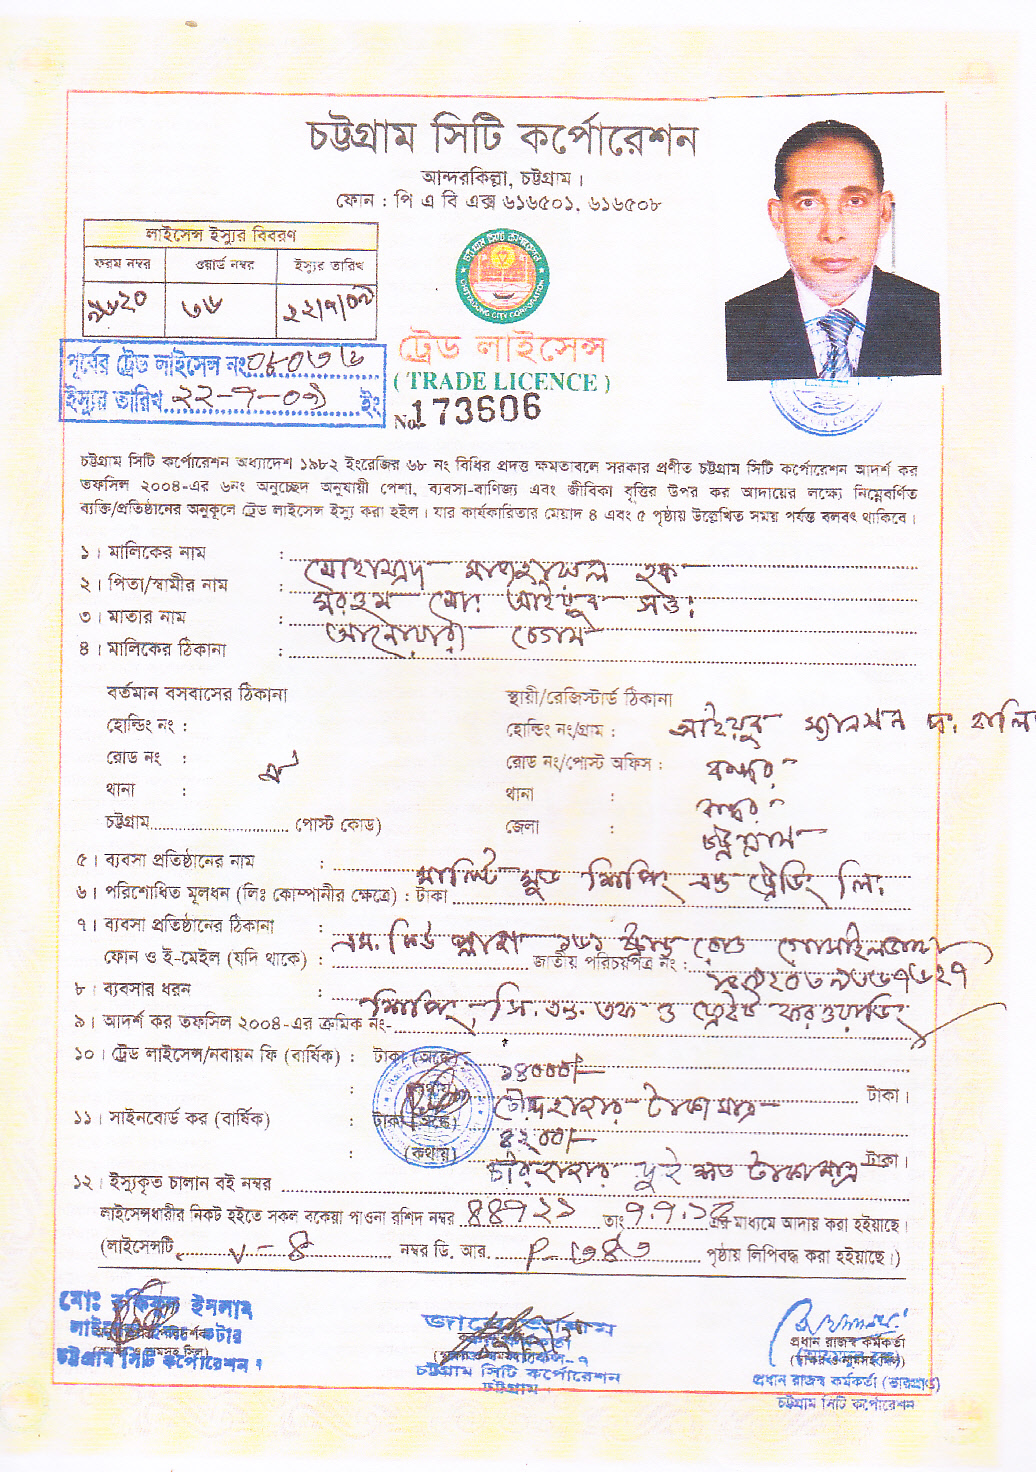 চট্টগ্রাম সিটি কর্পোরেশন
আন্দরকিল্লা, চট্টগ্রাম।
ফোন : পি এ বি এক্স ৬১৬৫০১, ৬১৬৫০৮
লাইসেন্স ইস্যুর বিবরণ
ফরম নম্বর ওয়ার্ড নম্বর ইস্যুর তারিখ
৩৬ ২২/৭/০৯
CHITTAGONG CITY CORPORATION
পূর্বের ট্রেড লাইসেন্স নং
ইস্যুর তারিখ ২২-৭-০৯ ইং
ট্রেড লাইসেন্স
( TRADE LICENCE )
No. 173606
চট্টগ্রাম সিটি কর্পোরেশন অধ্যাদেশ ১৯৮২ ইংরেজির ৬৮ নং বিধির প্রদত্ত ক্ষমতাবলে সরকার প্রণীত চট্টগ্রাম সিটি কর্পোরেশন আদর্শ কর
তফসিল ২০০৪-এর ৬নং অনুচ্ছেদ অনুযায়ী পেশা, ব্যবসা-বাণিজ্য এবং জীবিকা বৃত্তির উপর কর আদায়ের লক্ষ্যে নিম্নেবর্ণিত
ব্যক্তি/প্রতিষ্ঠানের অনুকূলে ট্রেড লাইসেন্স ইস্যু করা হইল। যার কার্যকারিতার মেয়াদ ৪ এবং ৫ পৃষ্ঠায় উল্লেখিত সময় পর্যন্ত বলবৎ থাকিবে।
১। মালিকের নাম : মোহাম্মদ হক
২। পিতা/স্বামীর নাম : মরহুম মোঃ আইয়ুব
৩। মাতার নাম : আনোয়ারা বেগম
৪। মালিকের ঠিকানা :
বর্তমান বসবাসের ঠিকানা
হোল্ডিং নং :
রোড নং : ঐ
থানা :
চট্টগ্রাম (পোস্ট কোড)
স্থায়ী/রেজিস্টার্ড ঠিকানা
হোল্ডিং নং/গ্রাম : আইয়ুব ম্যানসন দঃ
রোড নং/পোস্ট অফিস : বন্দর
থানা : বন্দর
জেলা : চট্টগ্রাম
৫। ব্যবসা প্রতিষ্ঠানের নাম : শিপিং এন্ড ট্রেডিং লিঃ
৬। পরিশোধিত মূলধন (লিঃ কোম্পানীর ক্ষেত্রে) : টাকা
৭। ব্যবসা প্রতিষ্ঠানের ঠিকানা : প্লাজা ষ্ট্রান্ড রোড গোসাইলডাঙ্গা
ফোন ও ই-মেইল (যদি থাকে) : জাতীয় পরিচয়পত্র নং :
৮। ব্যবসার ধরন : শিপিং, সি. এন্ড. এফ ও ফ্রেইট ফরওয়ার্ডিং
৯। আদর্শ কর তফসিল ২০০৪-এর ক্রমিক নং-
১০। ট্রেড লাইসেন্স/নবায়ন ফি (বার্ষিক) : টাকা (অঙ্কে) ১৪০০০/-
: (কথায়) চৌদ্দ হাজার টাকা মাত্র টাকা।
১১। সাইনবোর্ড কর (বার্ষিক) : টাকা (অঙ্কে) ৪২০০/-
: (কথায়) চার হাজার দুই শত টাকা মাত্র টাকা।
১২। ইস্যুকৃত চালান বই নম্বর
লাইসেন্সধারীর নিকট হইতে সকল বকেয়া পাওনা রশিদ নম্বর ৪৪৭২১ তাং এর মাধ্যমে আদায় করা হইয়াছে।
(লাইসেন্সটি নম্বর ডি. আর. পৃষ্ঠায় লিপিবদ্ধ করা হইয়াছে।)
মোঃ রফিকুল ইসলাম
চট্টগ্রাম সিটি কর্পোরেশন।
চট্টগ্রাম সিটি কর্পোরেশন
চট্টগ্রাম।
প্রধান রাজস্ব কর্মকর্তা
(স্বাক্ষর ও নামসহ সিল)
প্রধান রাজস্ব কর্মকর্তা (ভারপ্রাপ্ত)
চট্টগ্রাম সিটি কর্পোরেশন